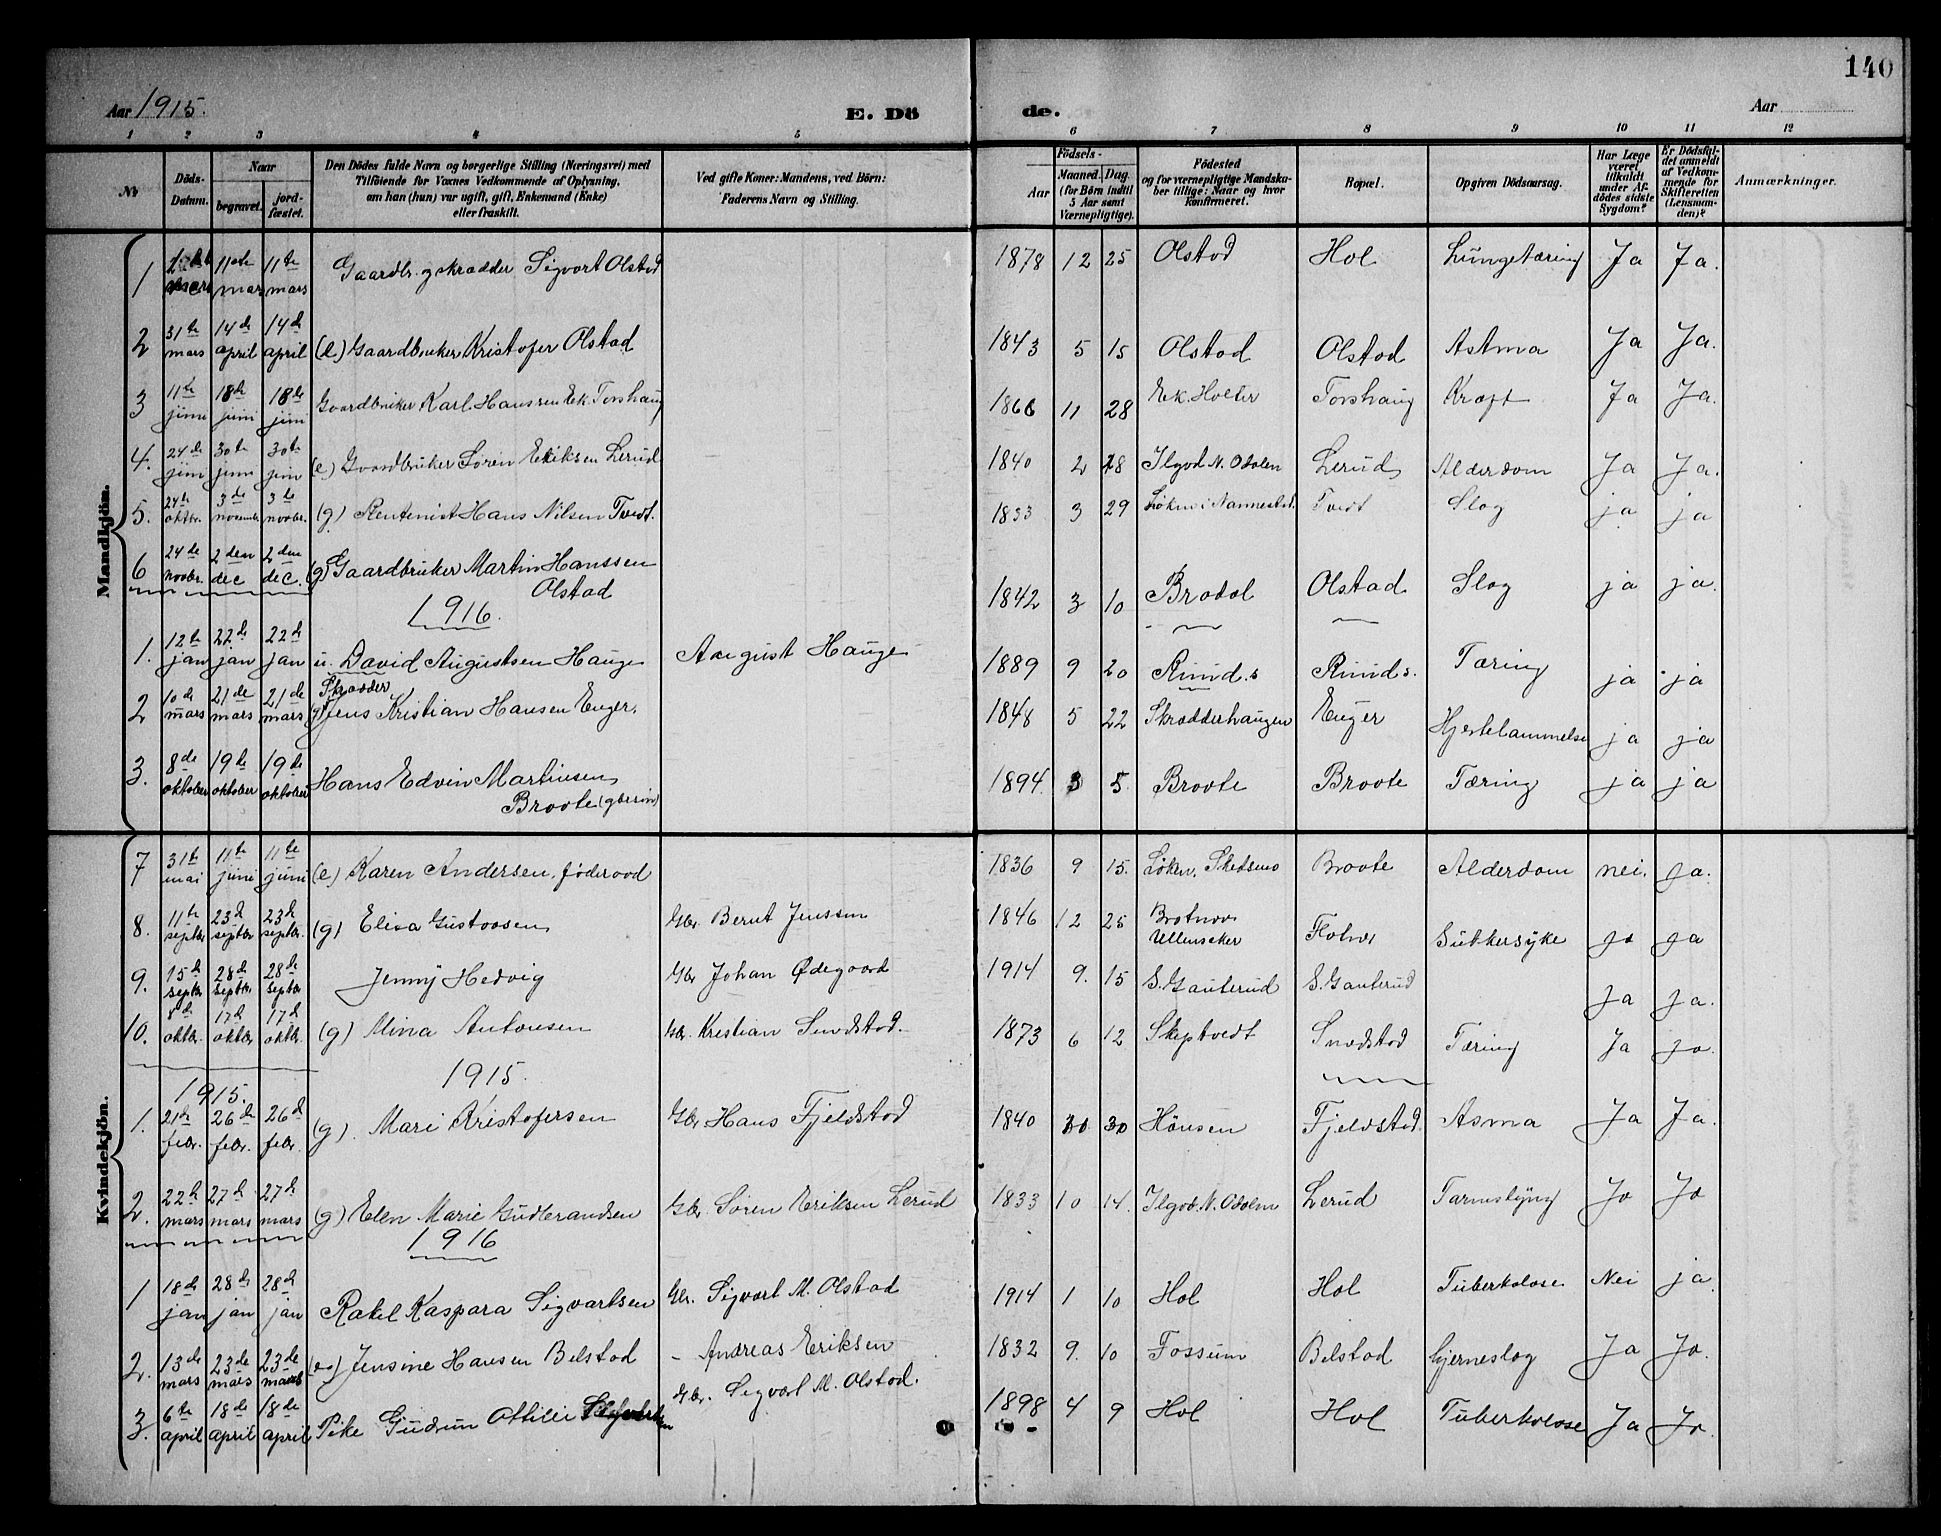 140
Aar 1915.
E. Dö de.
Aar
1 2 3 4 5 6 7 8 9 10 11 12
No
Döds-Datum.
Naar
begravet.
jordfæstet.
Den Dödes fulde Navn og borgerlige Stilling (Næringsvei) med
Tilföiende for Voxnes Vedkommende af Oplysning,
om han (hun) var ugift, gift, Enkemand (Enke)
eller fraskilt.
Ved gifte Koner: Mandens, ved Börn:
Faderens Navn og Stilling.
Födsels-
Aar
Maaned. Dag
(for Börn indtil
5 Aar samt
Værnepligtige).
Födested
og for værnepligtige Mandska-
ber tillige: Naar og hvor
konfirmeret.
Bopæl.
Opgiven Dödsaarsag.
Har Læge
været
tilkaldt
under Af-
dödes sidste
Sygdom?
Er Dödsfal-
det anmeldt
af Vedkom-
mende for
Skifteretten
(Lensman-
den)?
Anmærkninger.
Mandkjön.
1 mars 11te mars 11te mars Gaardbr. og skrædder Sigvart Olstad 1878 12 25 Olstad Hol Lungetæring Ja Ja.
2 31te mars 14de april 14de april (e) Gaardbruker Kristofer Olstad 1843 5 15 Olstad Olstad Astma Ja Ja.
3 11te juni 18de juni 18de juni Gaardbruker Karl Hanssen Ek. Torshaug 1866 11 28 Ek. Holter Torshaug Kræft Ja Ja.
4. 24de juni 30te juni 30te juni (e) Gaardbruker Søren Eriksen Lerud 1840 2 28 N. Odalen Lerud Alderdom Ja Ja.
5. 24de oktbr. 3de novembr. 3de novbr. (g) Rentenist Hans Nilsen Tvedt. 1833 3 29 Løkne i Nannestad. Tvedt Slag ja ja
6 24de novbr. 2den dec 2den dec. (g) Gaardbruker Martin Hanssen Olstad 1842 3 10 Brodal Olstad Slag ja ja.
1916.
1. 12te jan 22de jan 22de jan u. David Augustsen Hauge August Hauge 1889 9 20 Rund.s Rund s. Tæring ja ja
Skrædder
2 10de mars 21de mars 21de mars (g) Jens Kristian Hansen Enger. 1848 5 22 Skrædderhaugen Enger Hjertelammelse ja ja
3. 8de oktober 19de oktober 19de oktober Hans Edvin Martinsen Braate 1894. 3 5. Braate Braate Tæring ja ja
Kvindekjön.
7 31te mai 11te juni 11te juni (e) Karen Andersen, føderaad 1836 9 15. Løken, Skedsmo Braate Alderdom nei. ja.
8. 11te septbr 23d septbr. 23d septbr. (g) Elisa Gustavsen Gbr. Bernt Jenssen 1846 12 25 Ullensaker Sukkersyke ja ja
9. 15de septbr 28de septbr 28de septbr Jenny Hedvig Gbr Johan Ødegaard 1914 9. 15 S. Gauterud S. Gauterud ja ja.
10. 8de oktbr. 17d oktbr 17d oktbr. (g) Mina Antonsen Gbr. Kristian Sundstad. 1873 6 12 Skiptvedt Sundstad Tæring Ja ja.
1915.
1915.
1. 21de febr. 26de febr. 26d febr. (g). Mari Kristofersen Gbr Hans Fjeldstad 1840 30 Hønsen Fjeldstad. Asma Ja Ja.
2. 22d mars 27d mars 27d mars (g) Elen Marie Gudbrandsen Gbr. Søren Eriksen Lerud 1833 10 14. N. Odalen Lerud Tarmeslyng Ja Ja
1916
1 18d jan 28d jan 28d jan Rakel Kaspara Sigvartsen Gbr. Sigvart M. Olstad 1914 1 10 Hol Hol Tuberkolose Nei ja.
2. 13de mars 23de mars 23de mars Jensine Hansen Belstad - Andreas Eriksen 1832 9. 10 Fossum Belstad hjerneslag Ja Ja.
3. 6te april 18de april 18de april Pike Gudrun Ottilie Gbr. Sigvart M. Olstad. 1898 4 9 Hol Hol Tuberkolose Ja Ja.